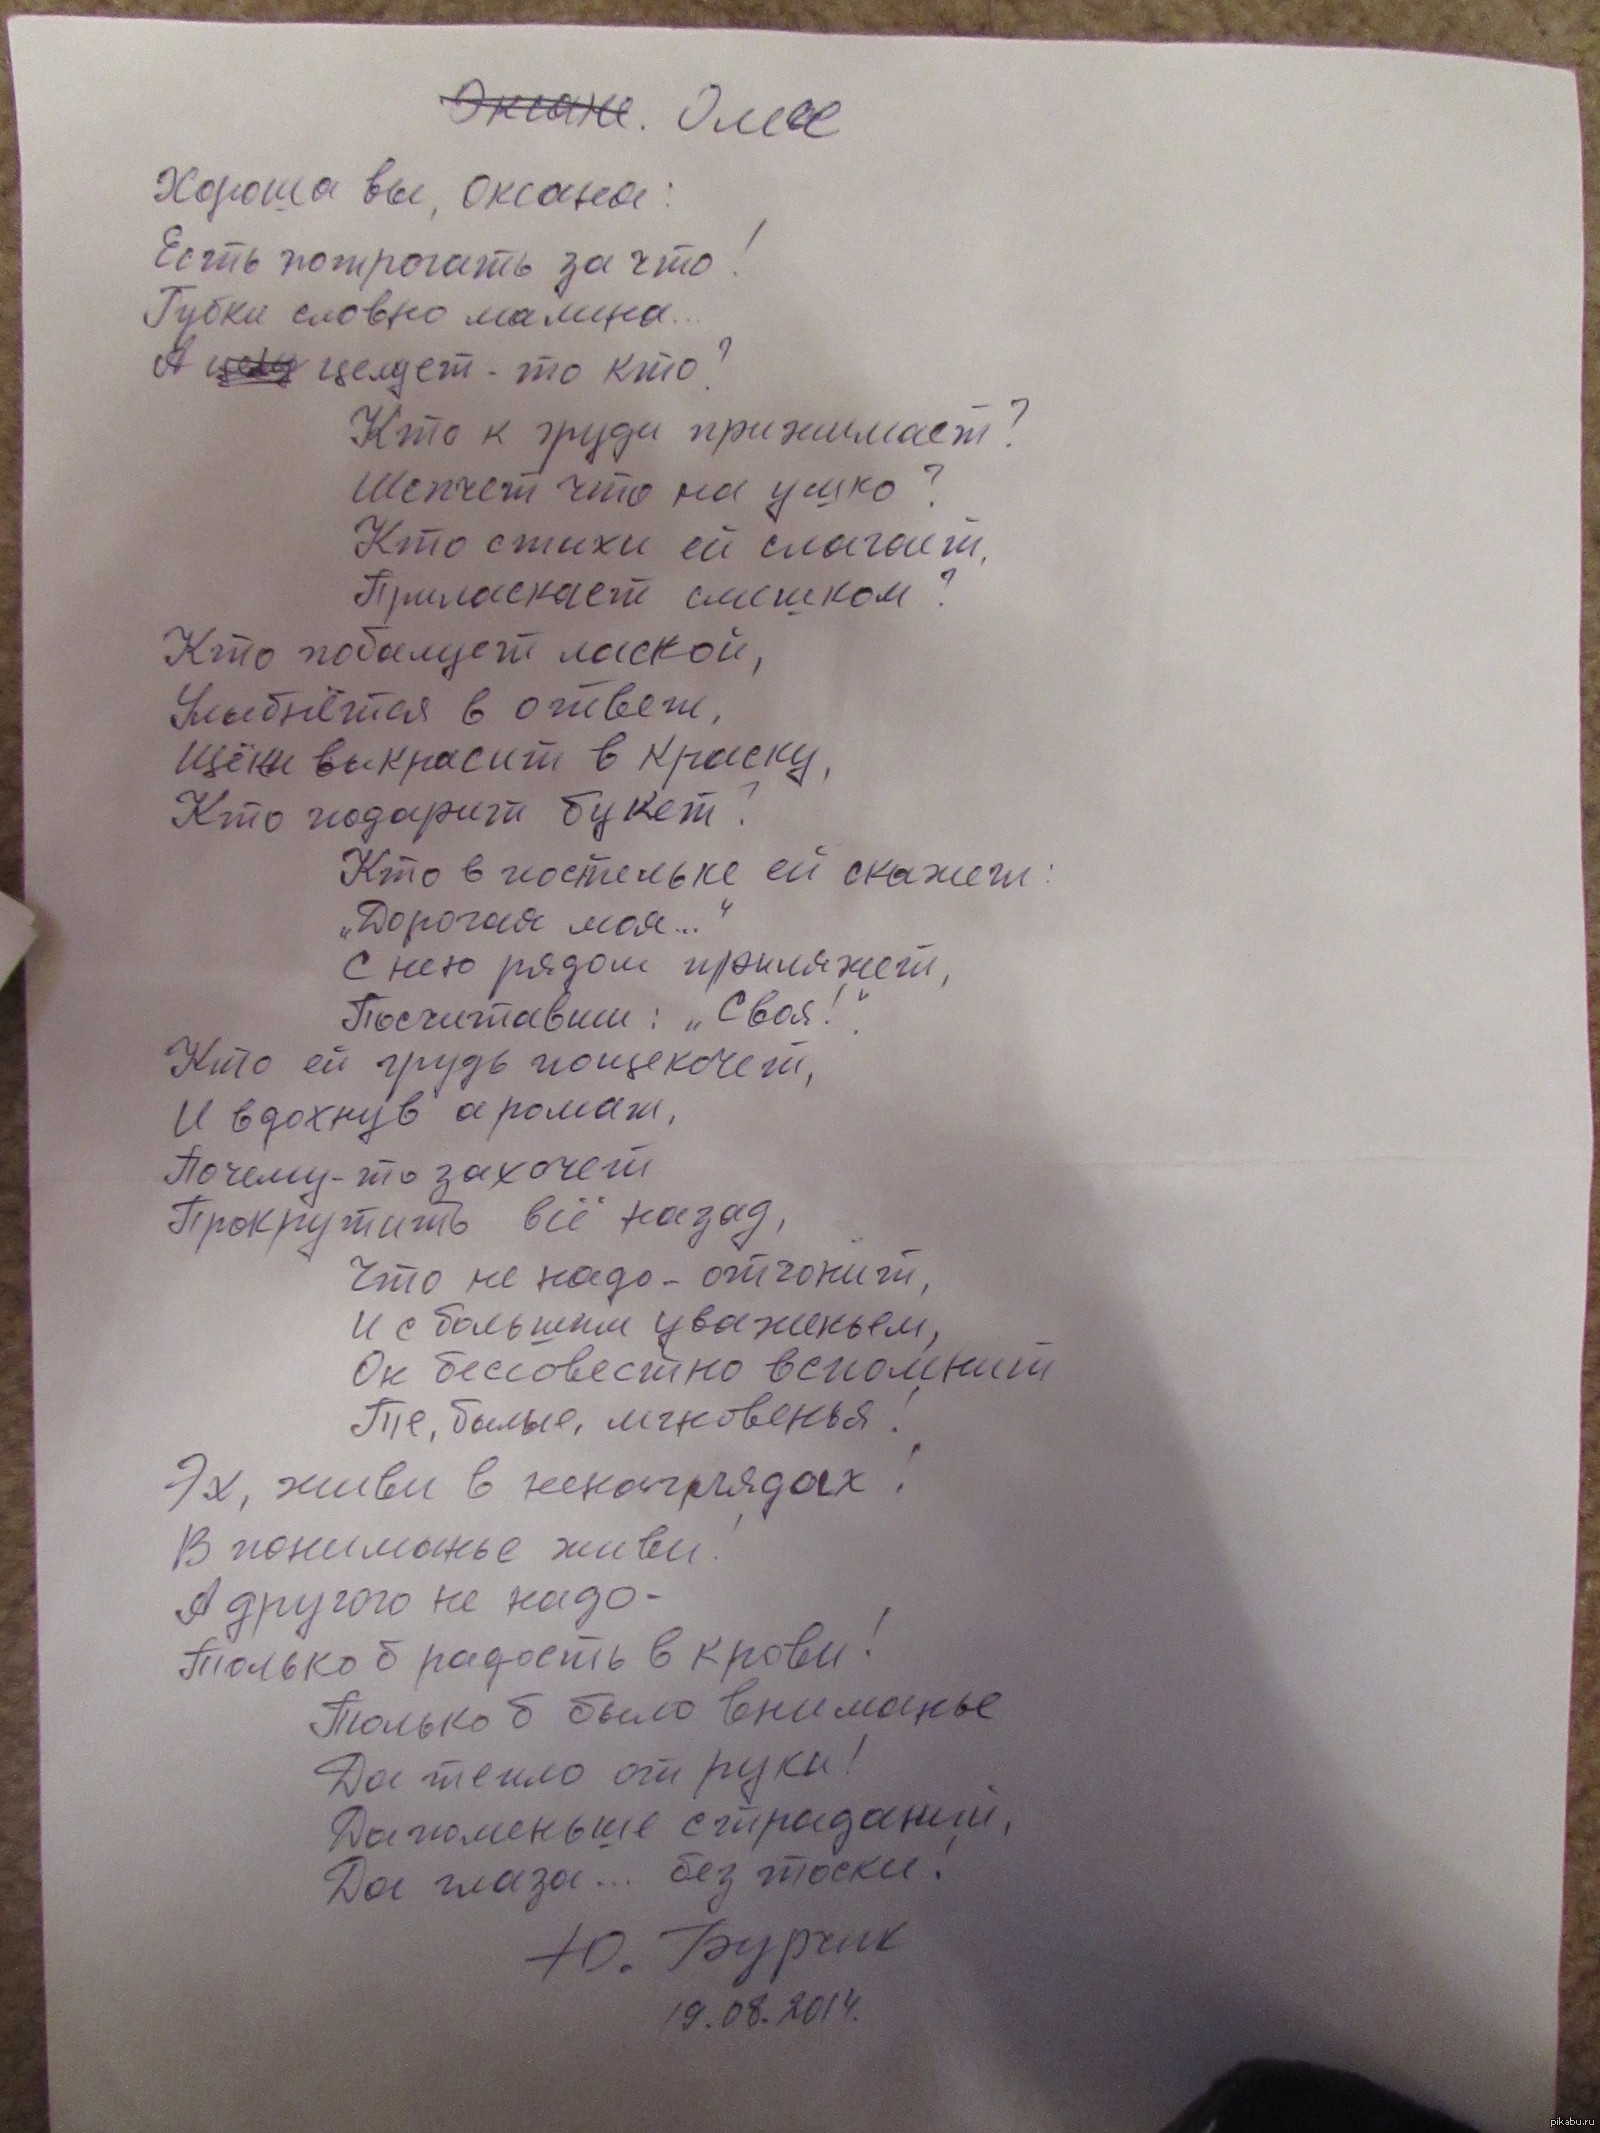 Оксане. Олее
Хороша вы, Оксана:
Есть потрогать за что!
Губки словно малина...
А целует - то кто?
Кто к груди прижимает?
Шепчет что на ушко?
Кто стихи ей слагает,
Приласкает смешком?
Кто побалует лаской,
Улыбнётся в ответ,
Щёки выкрасит в краску,
Кто подарит букет?
Кто в постельке ей скажет:
„Дорогая моя..."
С нею рядом приляжет,
Посчитавши: „Своя!".
Кто ей грудь пощекочет,
И вдохнув аромат,
Почему-то захочет
Прокрутить всё назад,
Что не надо - отгонит,
И с большим уваженьем,
Он бессовестно вспомнит
Те, былые, мгновенья!
Эх, живи в ненаглядах!
В пониманье живи!
А другого не надо -
Только б радость в крови!
Только б было вниманье
Да тепло от руки!
Да поменьше страданий,
Да глаза... без тоски!
Ю. Бурчик
19.08.2014.
pikabu.ru